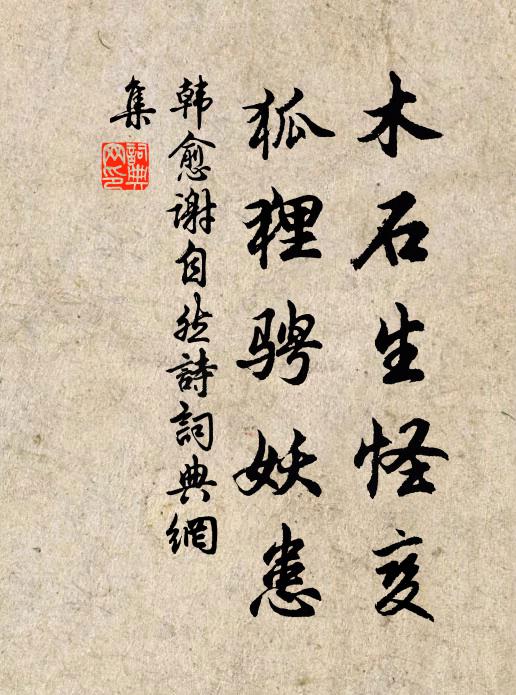 木石生怪变
狐狸骋妖患
韩愈谢自然詩詞典網
集
詞典
网印